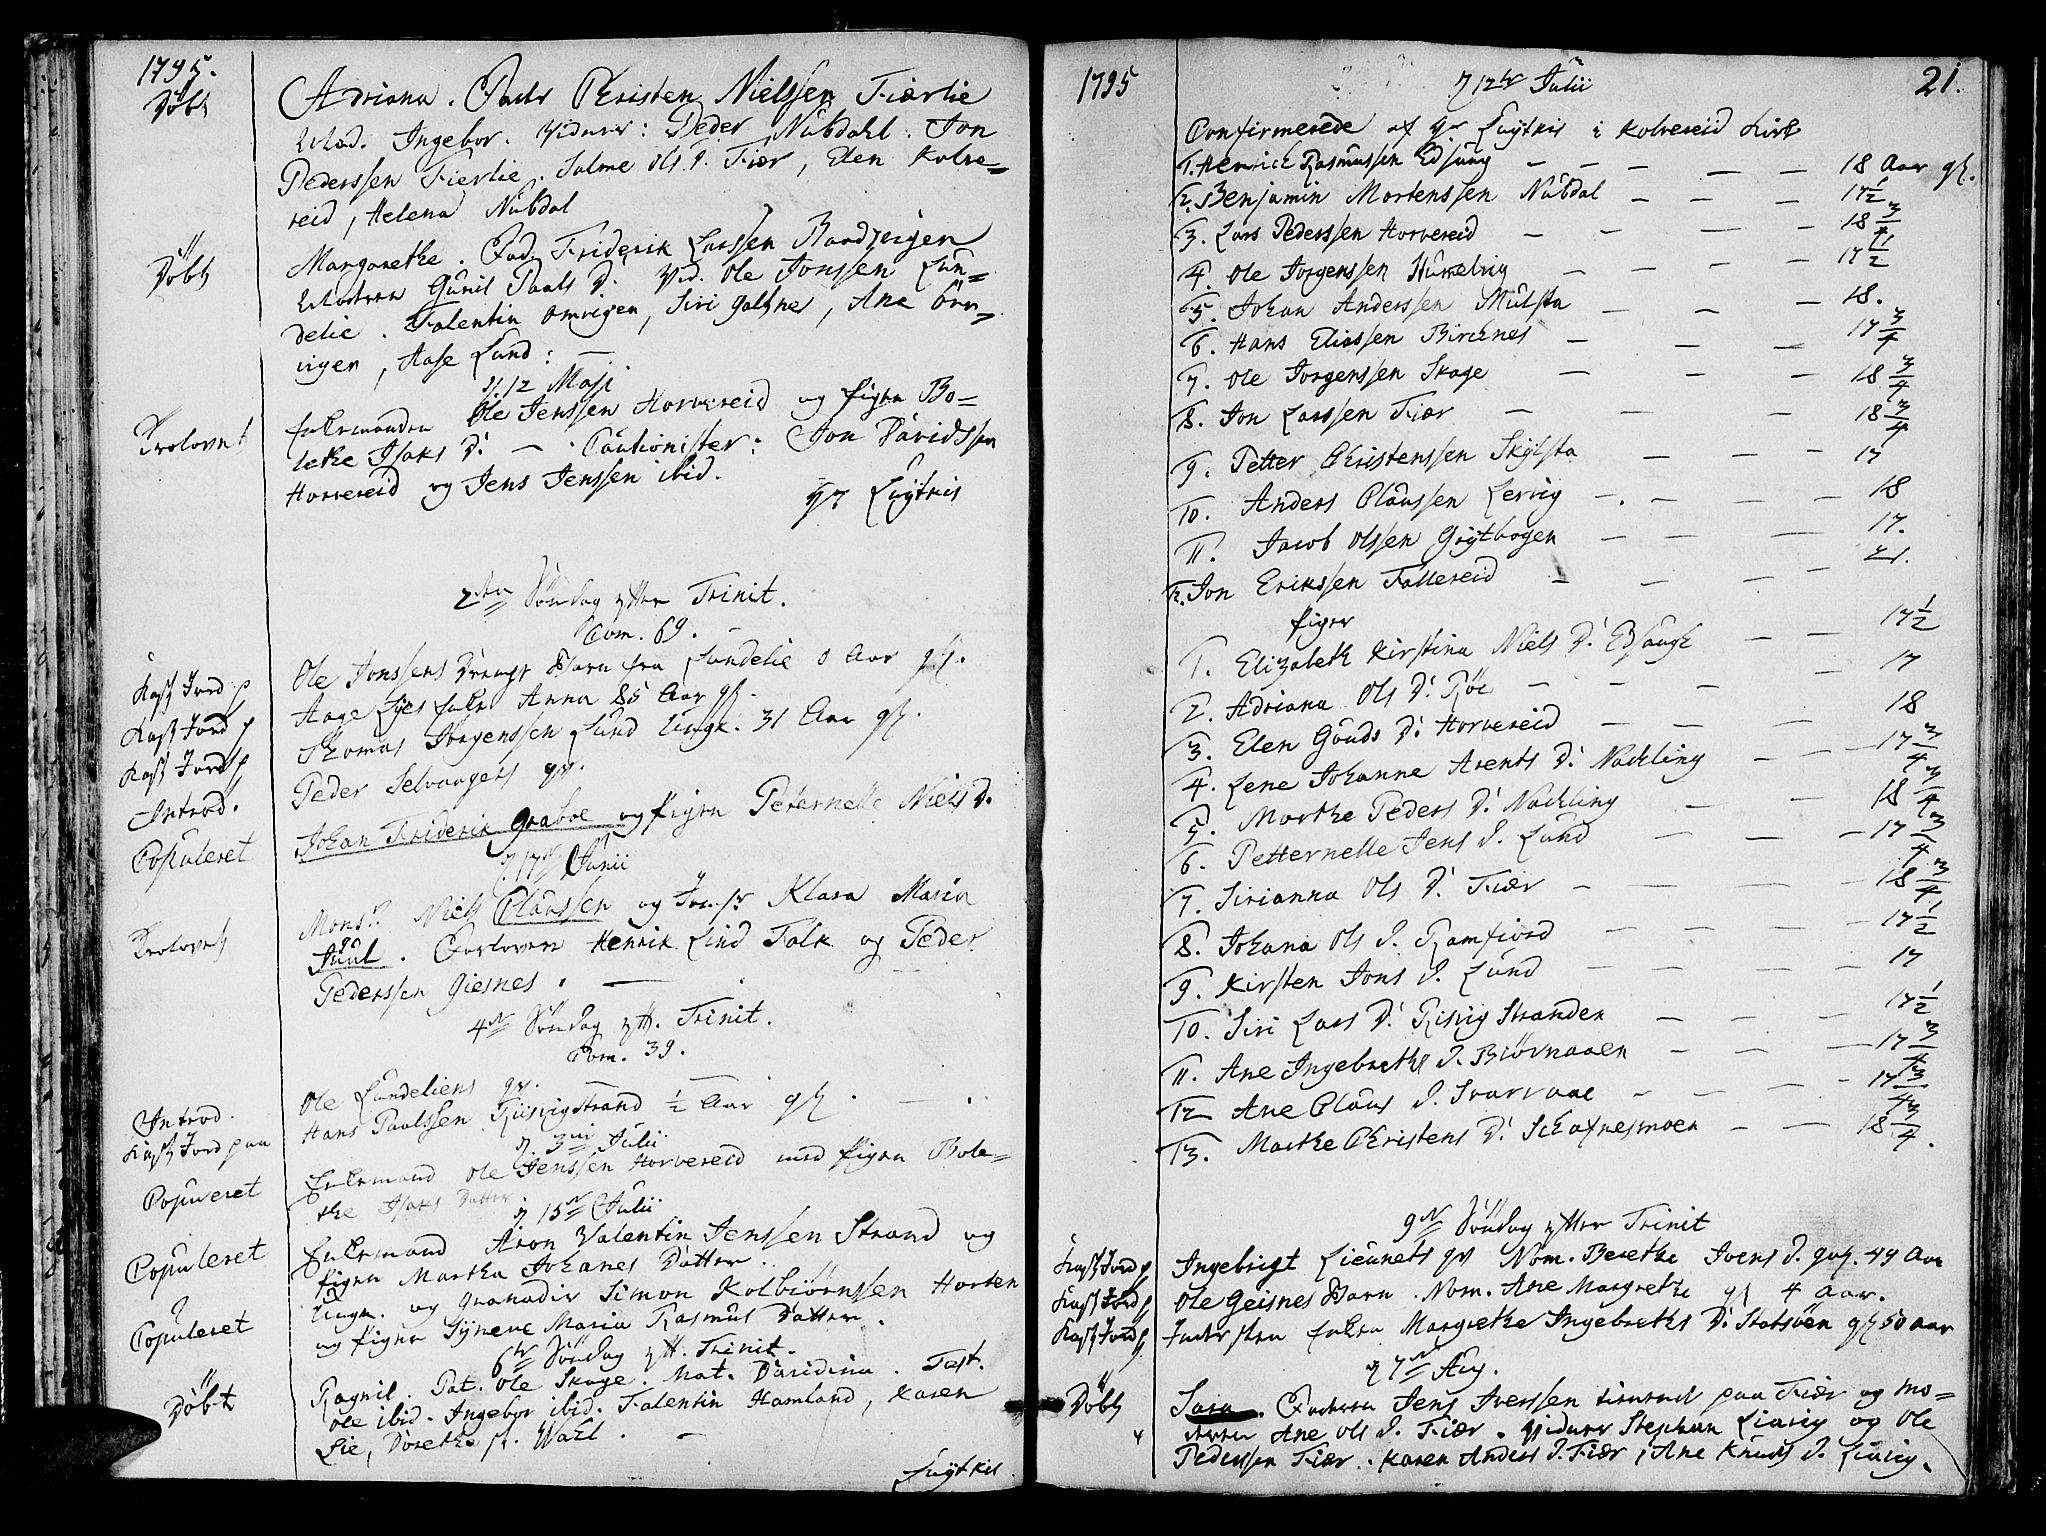 1795.
Döbt Adriana. Fader Christen Nielssen Fiærlie
Mod. Ingebor. Vidner: Peder Nubdahl. Jon
Pederssen Fierlie. Salme Ols D. Fiær, Elen Kolve=
reid, Helena Nubdal
Döbt Margarethe. Fad. Friderik Larssen
Moderen Gunil Paals D. Vid. Ole Jonssen Lun=
delie. Falentin Omvigen, Siri, Ane
vigen, Aase Lund: —
d. 12 Maji
Trolovet Enkemanden Ole Jenssen Horvereid og Pigen Bo=
lethe Isaks D. — Cautionister: Jon Davidssen
Horvereid og Jens Jenssen ibid.
Hr Lüytkis
2den Söndag efter Trinit.
Com. 69.
Kast Jord p Ole Jonssens Barn fra Lundelie 0 Aar gl.
Kast Jord p Aage Enke Anna 85 Aar gl.
Kast Jord p Thomas Jörgenssen Lund Ungk. 31 Aar gl.
Introd. Peder Selvaagets qv.
Copuleret Johan Friderik Graboe og Pigen Peternelle Niels D.
d. 17de Junii
Trolovet Monsr. Niels Claussen og Jomfr Klara Maria
Juul. Forlovere Henrik Lind Falk og Peder
Pederssen Giesnes. —
4de Söndag eft. Trinit.
Com. 39.
Introd. Ole Lundeliens qv. —
Kast Jord paa Hans Paulssen Riisvigstrand ½ Aar gl.
d. 3die Julii
Copuleret Enkemand Ole Jenssen Horvereid med Pigen Bole=
the Isaks Datter
d. 15de Julii
Copuleret Enkemand Aron Valentin Jenssen Strand og
Pigen Martha Johanes Datter.
Copuleret Ungk. og Granadir Simon Kolbiörnssen Horten
og Pigen Syneve Maria Rasmus Datter.
6te Söndag eft. Trinit.
Döbt Ragnil. Pat. Ole Skage. Mat. Davidina. Test.
Ole ibid. Ingebor ibid. Falentin Hamland, Karen
Lie, Dorethe Wahl. —
Lüytkis
1795 d 12te Julii 21.
Confirmerede af Hr Lüytkis i Kolvereid Kirke
1. Henrich Rasmussen Edshaug — — — — 18 Aar gl.
2. Benjamin Mortenssen Nubdal — — — 17½
3. Lars Pederssen Horvereid — — — — 18¾
4. Ole Jörgenssen Hunelvig — — — — 17½
5. Johan Anderssen Mulsta — — — 18.
6. Hans Eliassen Birchnes — — — 17¾
7. Ole Jörgenssen Skage — — — 18¾
8. Jon Larssen Fiær — — — — 18¾
9. Petter Christenssen Skylsta — — — 17
10. Anders Claussen Lervig — — — — 18
11. Jacob Olssen Grytbogen — — — — 17.
12. Jon Erikssen Follereid — — — — 21.
Piger
1. Elizabeth Kirstina Niels D. Edshaugh — — 17½
2. Adriana Ols D. Röe — — — — 17
3. Elen Gouds D. Horvereid — — — — 18
4. Lene Johanne Arents D. Nackling — — — 17¾
5. Marthe Peders D. Nackling — — 18¾
6. Petternelle Jens D. Lund — — — 17¾
7. Sirianna Ols D. Fiær — — — — 18¾
8. Johana Ols D. Ramfiord — — — — 17½
9. Kirsten Jons D. Lund — — — — 17
10. Siri Lars D. Risvig Stranden — — — — 17½
11. Ane Ingebreths D. Biörnaaen — — — 17¾
12 Ane Claus D. Svarvaae — — — 17¾
13. Marthe Christens D. Schafnesmoen — — 18¾.
9de Söndag efter Trinit
Kast Jord p Ingebrigt qv Nom. Berethe Ivers D. gl. 49 Aar
Kast Jord p Ole Geisnes Barn. Nom. Ane Margrethe gl 4 Aar.
Kast Jord p Enken Margrethe Ingebreths D. Stotsöen gl 50 aar
d 7de Aug.
Döbt Sara. Faderen Jens Iverssen paa Fiær og Mo=
deren Ane Ols D. Fiær. Vidner Stephen Liavig og Ole
Pederssen Fiær. Karen Anders D. Fiær, Ane Knuds D. Liavig.